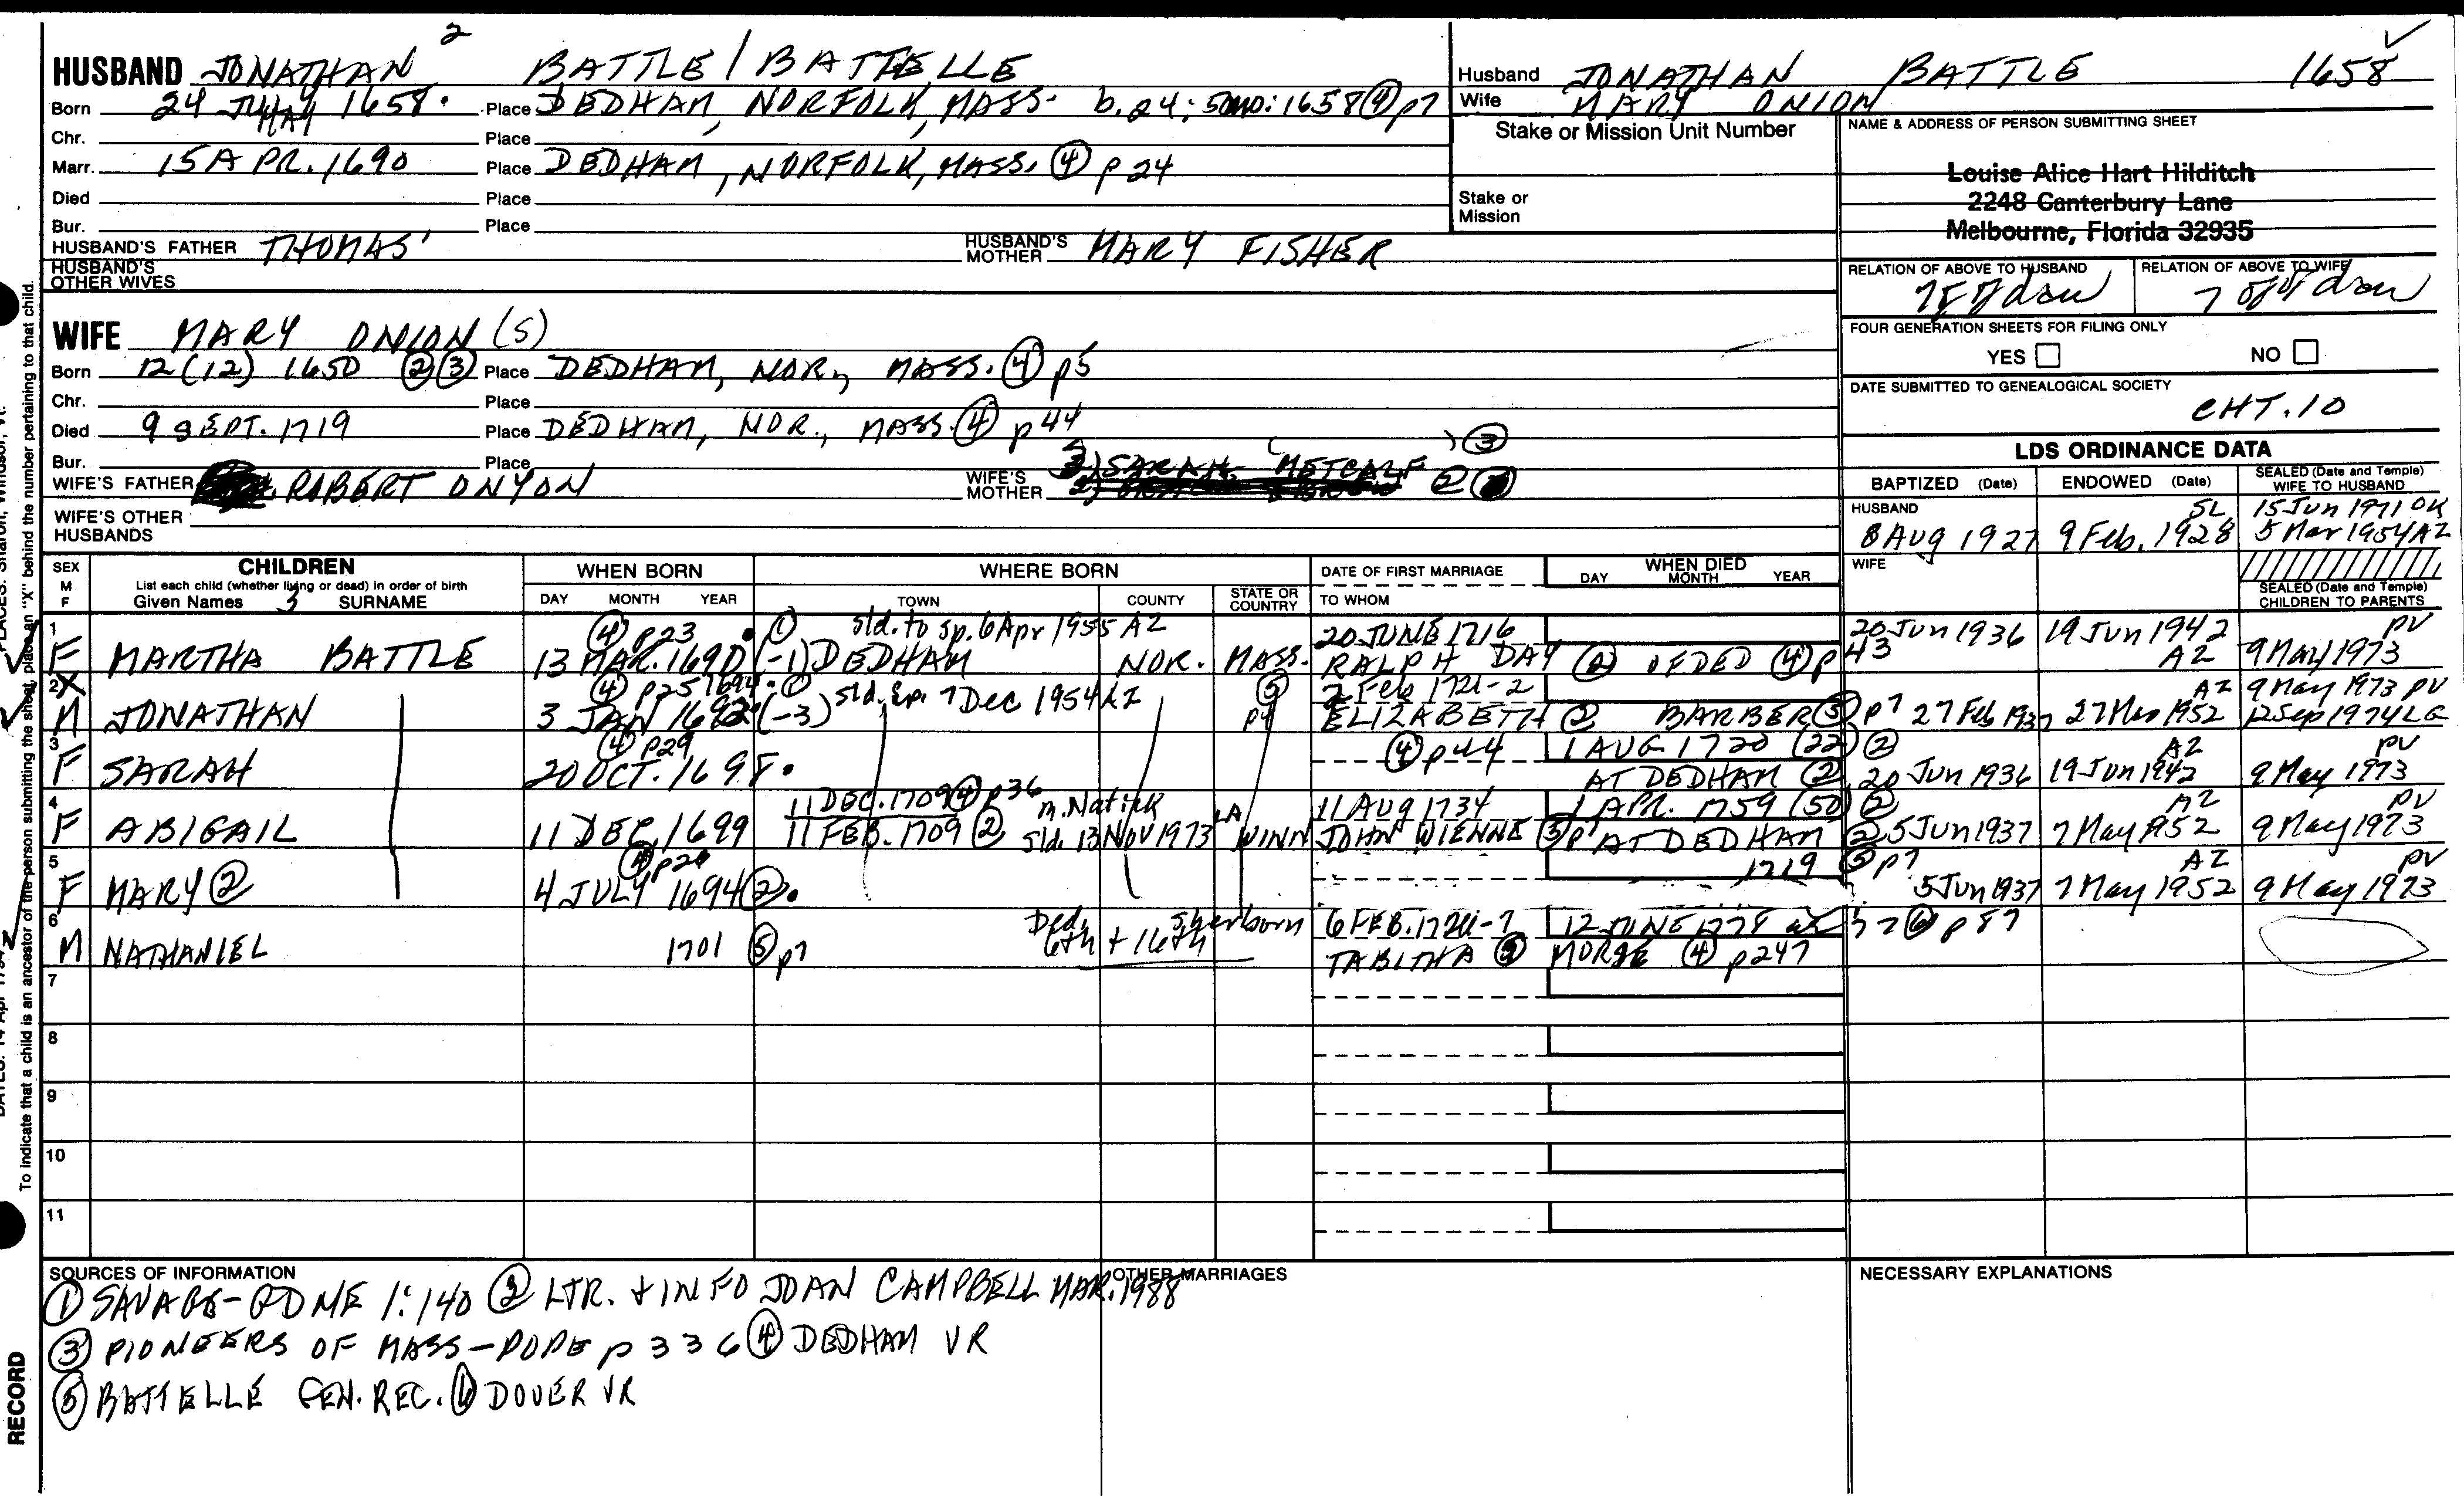 2
HUSBAND JONATHAN BATTLE / BATTELLE
Born 24 JULY MAY 1658. Place DEDHAM, NORFOLK, MASS. b. 24: 5mo: 1658 ④ p7
Chr. Place
Marr. 15 APR. 1690 Place DEDHAM, NORFOLK, MASS. ④ p 24
Died Place
Bur. Place
HUSBAND'S FATHER THOMAS' HUSBAND'S MOTHER MARY FISHER
HUSBAND'S OTHER WIVES
WIFE MARY ONION (S)
Born 12 (12) 1650 ②③ Place DEDHAM, NOR., MASS. ④ p5
Chr. Place
Died 9 SEPT. 1719 Place DEDHAM, NOR., MASS. ④ p44
Bur. Place
WIFE'S FATHER ROBERT ONYON WIFE'S MOTHER SARAH METCALF ② ③
WIFE'S OTHER HUSBANDS
Husband JONATHAN BATTLE 1658
Wife MARY ONION
Stake or Mission Unit Number
Stake or Mission
NAME & ADDRESS OF PERSON SUBMITTING SHEET
Louise Alice Hart Hilditch
2248 Canterbury Lane
Melbourne, Florida 32935
RELATION OF ABOVE TO HUSBAND RELATION OF ABOVE TO WIFE
FOUR GENERATION SHEETS FOR FILING ONLY
YES NO
DATE SUBMITTED TO GENEALOGICAL SOCIETY
CHT. 10
LDS ORDINANCE DATA
BAPTIZED (Date) ENDOWED (Date) SEALED (Date and Temple) WIFE TO HUSBAND
HUSBAND SL 15 Jun 1971 OK
8 AUG 1927 9 Feb. 1928 5 Mar 1954 AZ
WIFE
SEALED (Date and Temple) CHILDREN TO PARENTS
SEX M F CHILDREN WHEN BORN WHERE BORN DATE OF FIRST MARRIAGE WHEN DIED
List each child (whether living or dead) in order of birth
Given Names 3 SURNAME DAY MONTH YEAR TOWN COUNTY STATE OR COUNTRY TO WHOM DAY MONTH YEAR
1 ④ p23 ① sld. to sp. 6 Apr 1955 AZ 20 JUNE 1716 20 Jun 1936 19 Jun 1942 PV
F MARTHA BATTLE 13 MAR. 1690 (-1) DEDHAM NOR. MASS. RALPH DAY ② OF DED ④ p 43 AZ 9 May 1973
2 X ④ p25 1694. ① sld. sp. 7 Dec 1954 AZ ⑤ 2 Feb 1721-2 AZ 9 May 1973 PV
M JONATHAN 3 JAN 1692 (-3) p7 ELIZABETH ② BARBER ⑤ p7 27 Feb 1937 27 Mar 1952 12 Sep 1974 LG
3 ④ p29 ④ p44 1 AUG 1720 (22) ② AZ PV
F SARAH 20 OCT. 1698. AT DEDHAM ② 20 Jun 1936 19 Jun 1942 9 May 1973
4 11 DEC. 1709 ④ p36 m. Natick 11 AUG 1734 1 APR. 1759 (50) ② AZ PV
F ABIGAIL 11 DEC, 1699 11 FEB. 1709 ② sld. 13 NOV 1973 LA WINN JOHN WIENNE ⑤ p7 AT DEDHAM ② 5 Jun 1937 7 May 1952 9 May 1973
5 1719 ⑤ p7 AZ PV
F MARY ② 4 JULY 1694 ②. 5 Jun 1937 7 May 1952 9 May 1973
6 Ded. Sherborn 6 FEB. 12 JUNE 1778 ⑥ p 87
M NATHANIEL 1701 ⑤ p7 6th + 16th TABITHA ⑤ MORSE ④ p247
7
8
9
10
11
SOURCES OF INFORMATION OTHER MARRIAGES NECESSARY EXPLANATIONS
① SAVAGE-GDNE 1:140 ② LTR. + INFO JOAN CAMPBELL MAR. 1988
③ PIONEERS OF MASS-POPE p 336 ④ DEDHAM VR
⑤ BATTELLE GEN. REC. ⑥ DOVER VR
To indicate that a child is an ancestor of the person submitting the sheet, place an "X" behind the number pertaining to that child.
RECORD